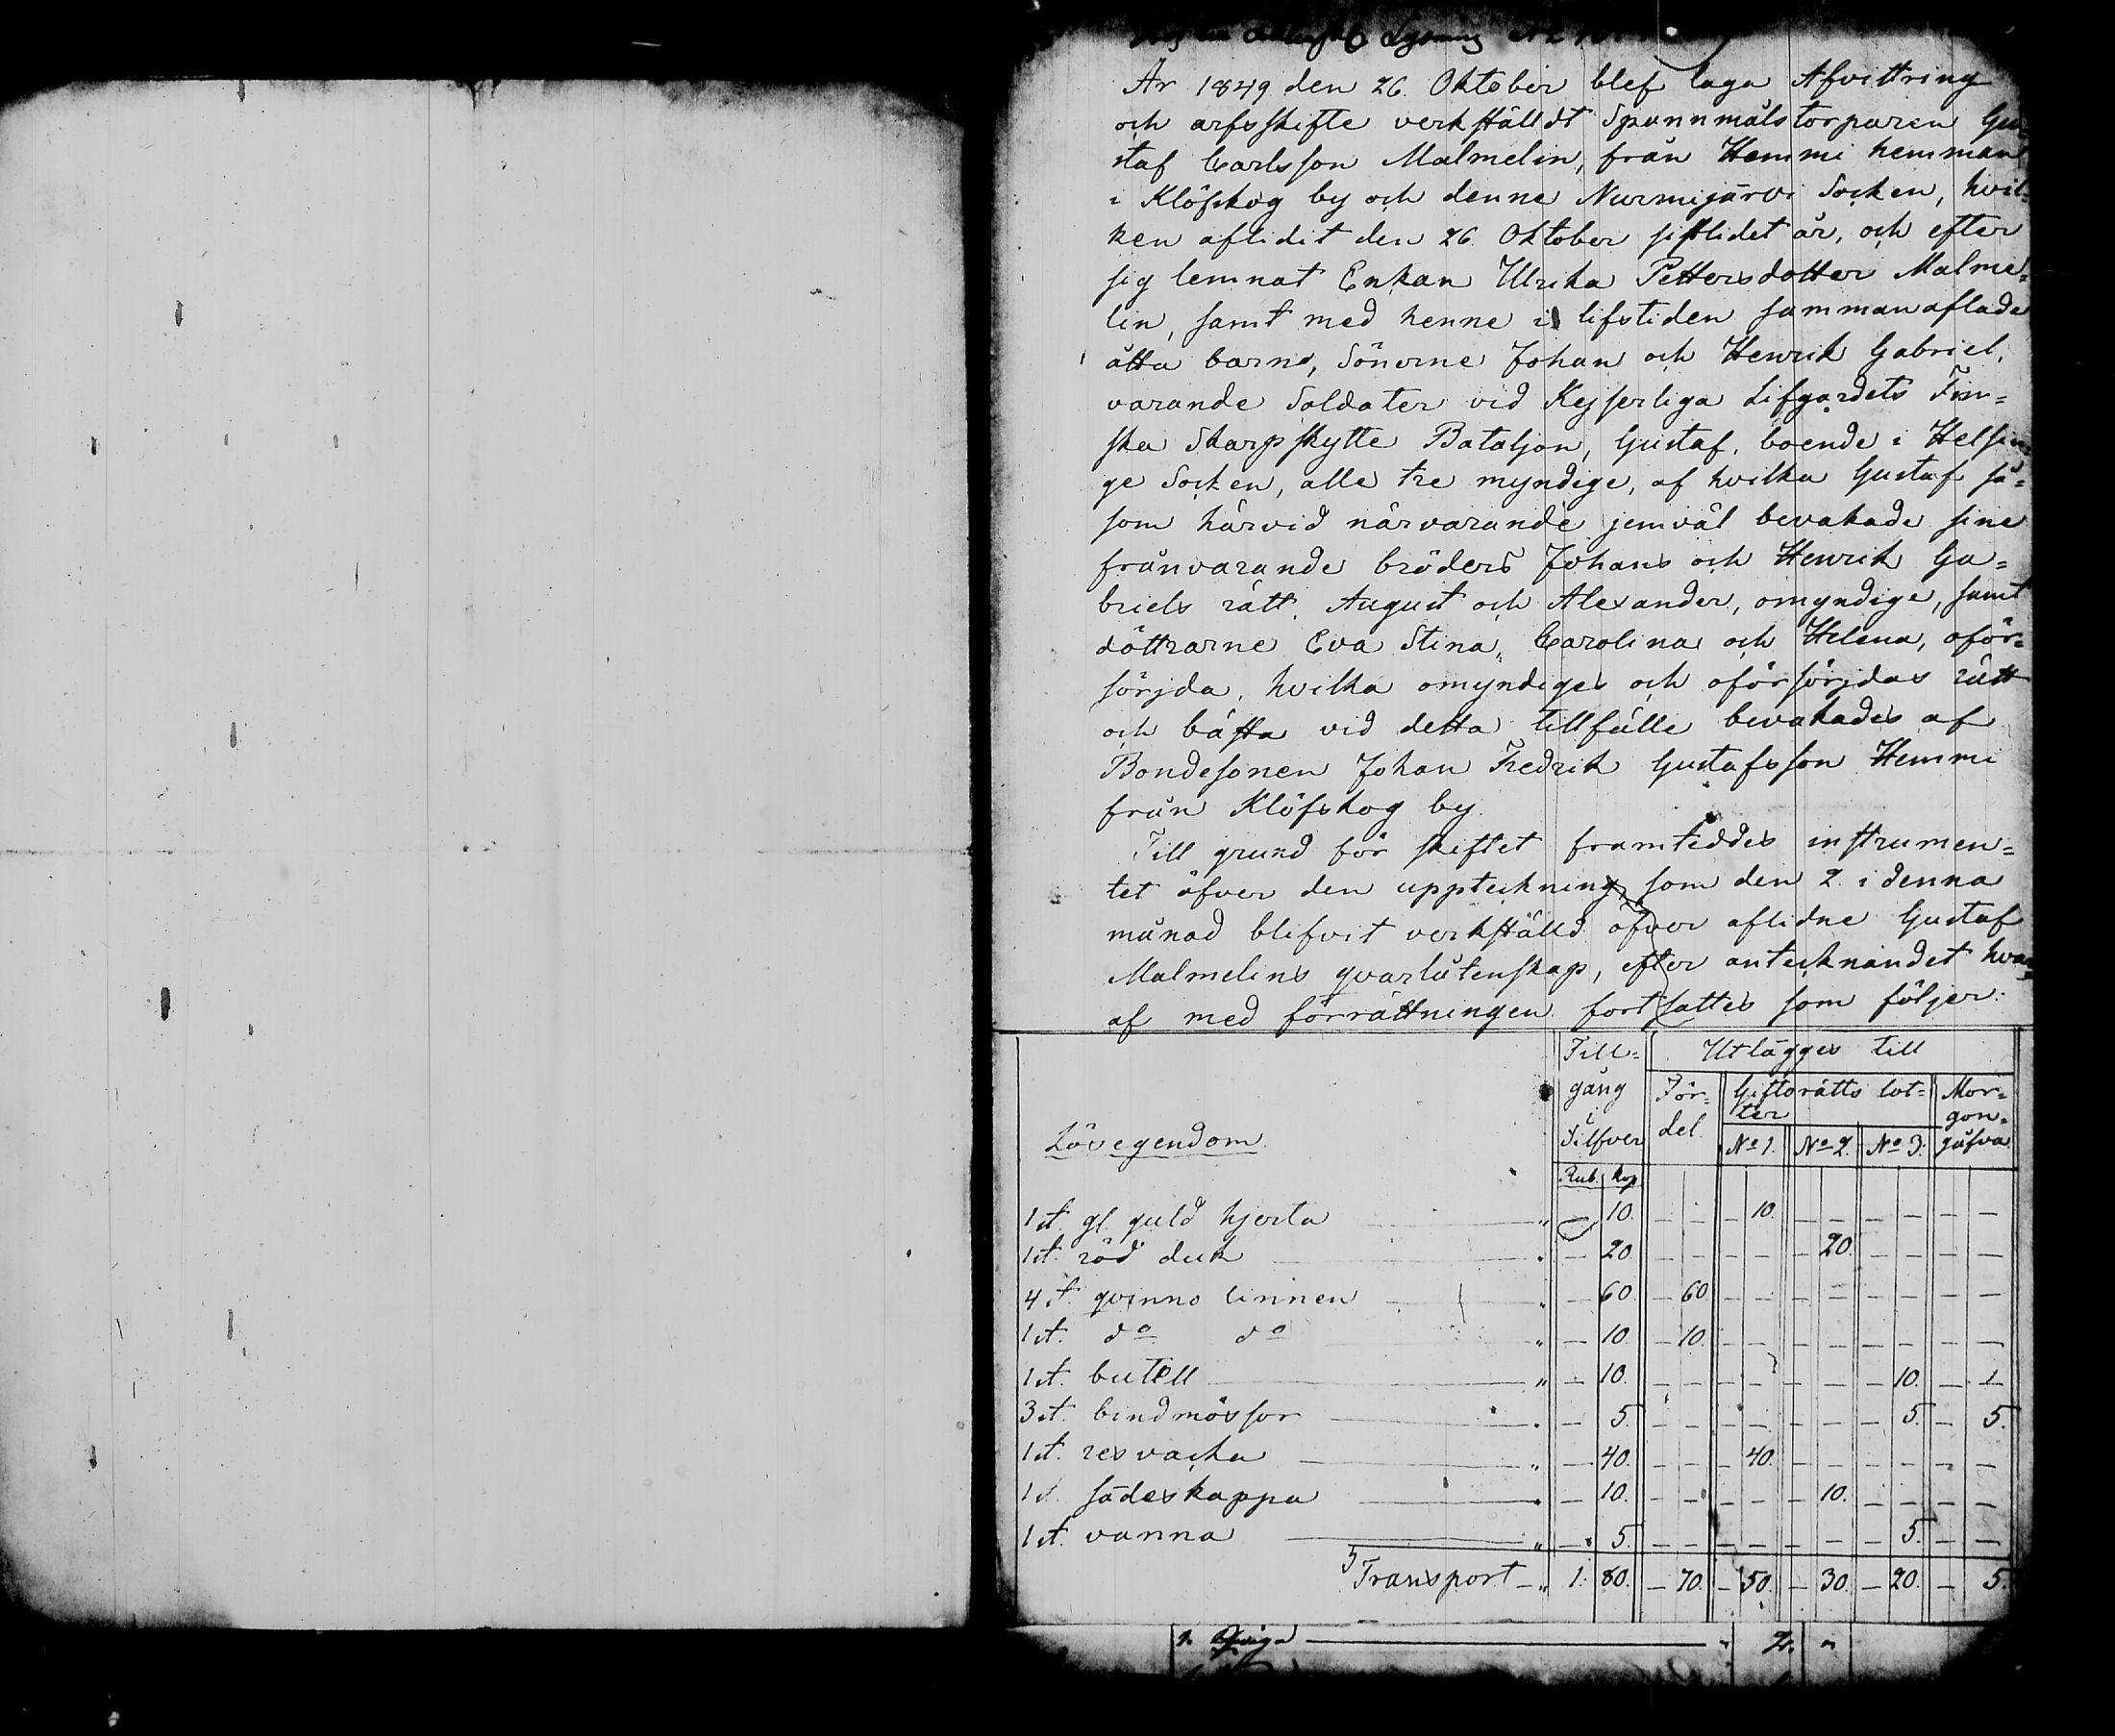 År 1849 den 26. Oktober blef laga Afvittring
och arfsskifte verkställdt Spannmålstorparen Gu-
staf Carlsson Malmelin, från Hemmi hemman
i Klöfskog by och denne Nurmijärvi Socken, hvil-
ken aflidit den 26 Oktober sistlidet år, och efter
sig lemnat Enkan Ulrika Pettersdotter Malme=
lin, samt med henne i lifstiden sammanaflade
åtta barn, Sönerne Johan och Henrik Gabriel,
varande Soldater vid Kejserliga Lifgardets Fin=
ska Skarpskytte Bataljon, Gustaf, boende i Helsin=
ge Socken, alle tre myndige, af hvilka Gustaf så=
som härvid närvarande jemväl bevakade sine
frånvarande bröders Johans och Henrik Ga=
briels rätt, August och Alexander, omyndige, samt
döttrarne Eva Stina, Carolina och Helena, oför=
sörjda, hvilka omyndiges och oförsörjdas rätt
och bästa vid detta tillfälle bevakades af
Bondesonen Johan Fredrik Gustafsson Hemmi
från Klöfskog by.
Till grund för skiftet framteddes instrumen=
tet öfver den uppteckning, som den 2. i denna
månad blifvit verkställd öfver aflidne Gustaf
Malmelins qvarlåtenskap, efter antecknandet hvar=
af med förrättningen fortsattes som följer:
Till= Utlägges till
gång För= Giftorätts lot= Mor=
i ter gon=
Lösegendom. Silfver del. No 1. No 2. No 3. gåfva
Rub. kop
1 st. gl. guld hjerta " — 10. — — — 10. — — — — — —
1 st. röd duk " — 20 — — — — — 20. — — — —
4 st. qvinno linnen " — 60 — 60 — — — — — — — —
1 st. do do " — 10. — 10. — — — — — — — —
1 st. butell " — 10. — — — — — — — 10. — —
3 st. bindmössor " — 5. — — — — — — — 5. — 5.
1 st. resväcka " — 40. — — — 40. — — — — — —
1 st. sädeskappa " — 10. — — — — — 10. — — — —
1 st. vanna " — 5. — — — — — — — 5. — —
Transport — " 1. 80. — 70. — 50. — 30. — 20. — 5.